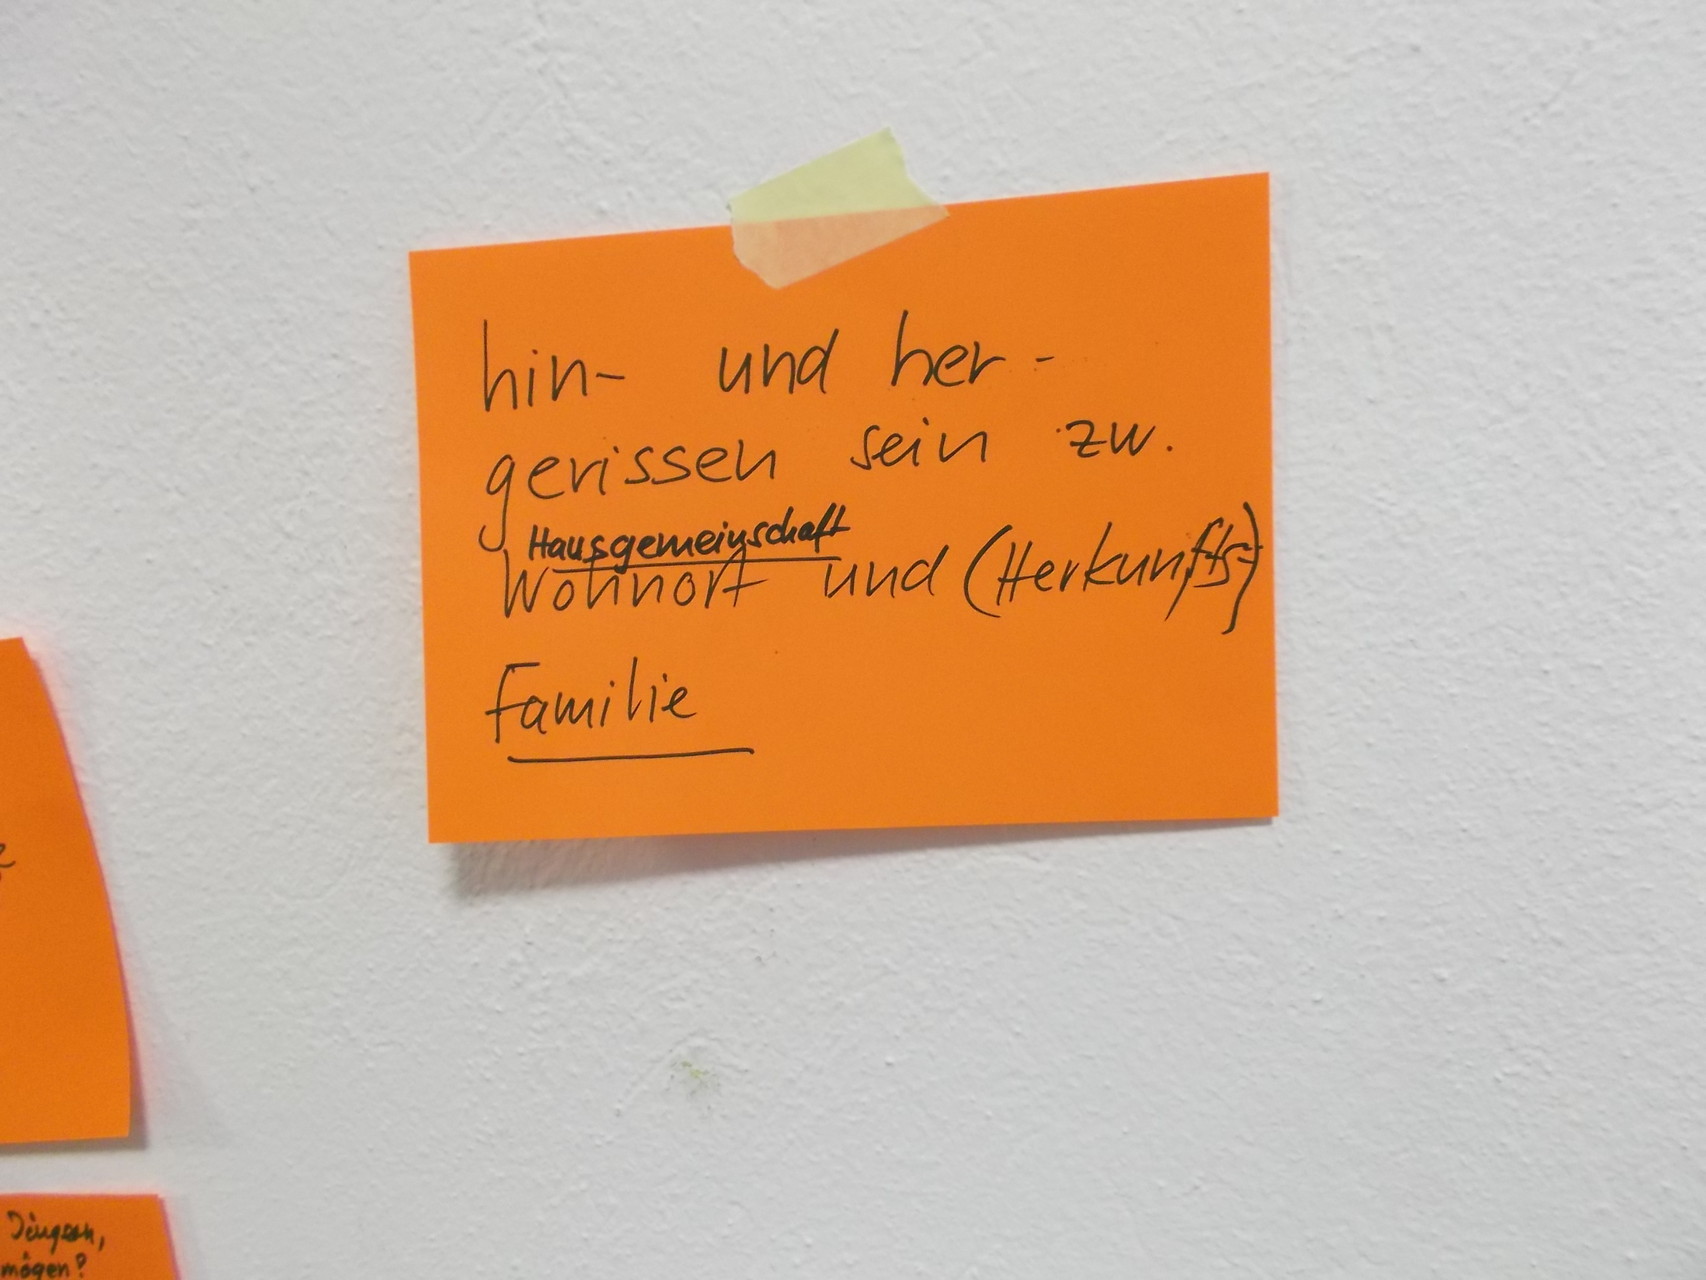 hin- und her-
gerissen sein zw.
Hausgemeinschaft
Wohnort und (Herkunfts-)
Familie
mögen?